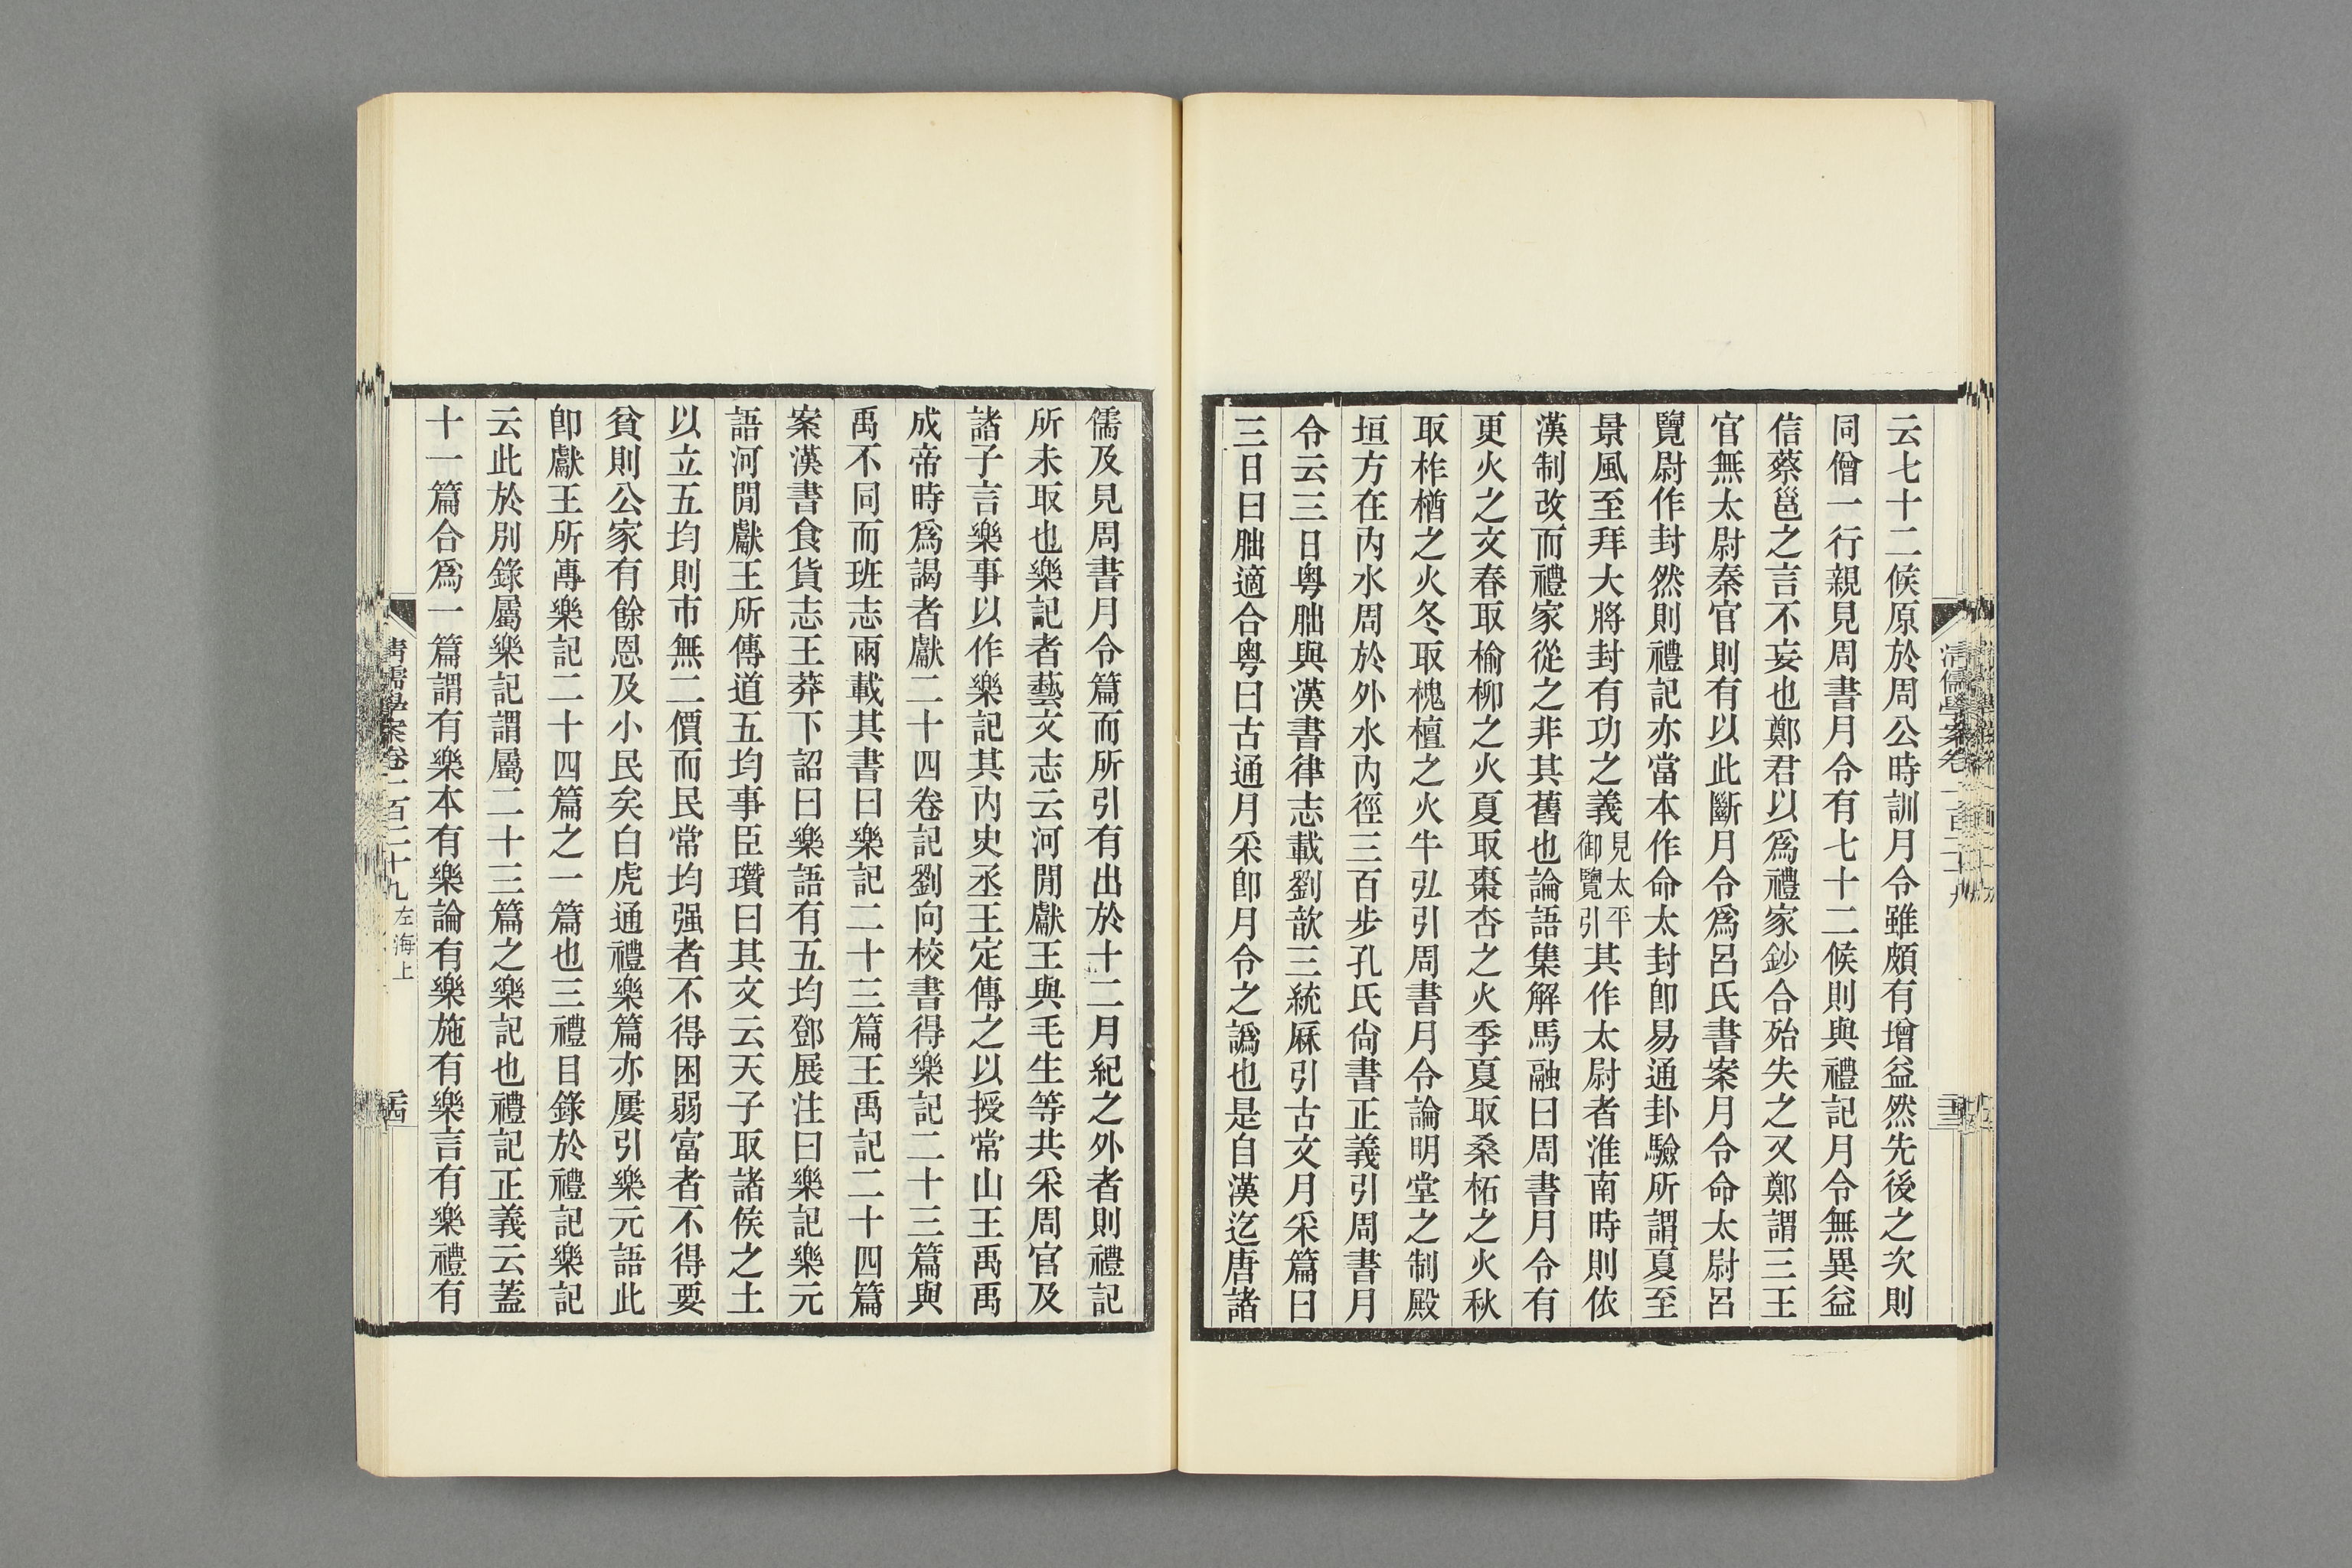 云七十二候原於周公時訓月令雖頗有增益然先後之次則
同僧一行親見周書月令有七十二候則與禮記月令無異益
信蔡邕之言不妄也鄭君以爲禮家鈔合殆失之又鄭謂三王
官無太尉秦官則有以此斷月令爲呂氏書案月令命太尉呂
覽尉作封然則禮記亦當本作命太封卽易通卦驗所謂夏至
景風至拜大將封有功之義見太平御覽引其作太尉者淮南時則依
漢制改而禮家從之非其舊也論語集解馬融曰周書月令有
更火之文春取榆柳之火夏取棗杏之火季夏取桑柘之火秋
取柞楢之火冬取槐檀之火牛弘引周書月令論明堂之制殿
垣方在內水周於外水內徑三百步孔氏尙書正義引周書月
令云三日粵朏與漢書律志載劉歆三統厤引古文月采篇曰
三日曰朏適合粵曰古通月采卽月令之譌也是自漢迄唐諸
清儒學案卷一百二十九
儒及見周書月令篇而所引有出於十二月紀之外者則禮記
所未取也樂記者藝文志云河閒獻王與毛生等共采周官及
諸子言樂事以作樂記其內史丞王定傳之以授常山王禹禹
成帝時爲謁者獻二十四卷記劉向校書得樂記二十三篇與
禹不同而班志兩載其書曰樂記二十三篇王禹記二十四篇
案漢書食貨志王莽下詔曰樂語有五均鄧展注曰樂記樂元
語河閒獻王所傳道五均事臣瓚曰其文云天子取諸侯之土
以立五均則市無二價而民常均强者不得困弱富者不得要
貧則公家有餘恩及小民矣白虎通禮樂篇亦屢引樂元語此
卽獻王所傳樂記二十四篇之一篇也三禮目錄於禮記樂記
云此於別錄屬樂記謂屬二十三篇之樂記也禮記正義云蓋
十一篇合爲一篇謂有樂本有樂論有樂施有樂言有樂禮有
清儒學案卷一百二十九 左海上 二十四